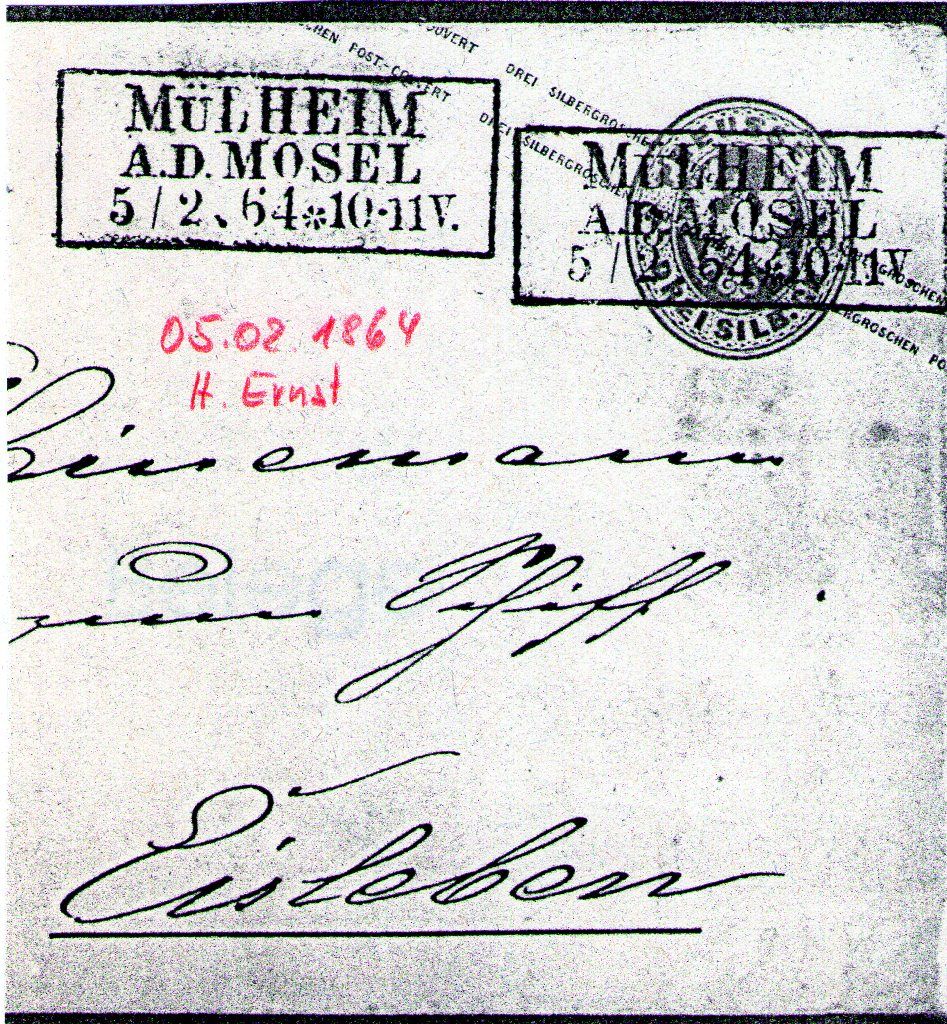 CHEN POST-COUVERT
OUVERT
DREI SILBERGROSCHE
DREI SILBERGROSCHEN
MÜLHEIM
A.D. MOSEL
5 / 2. 64 * 10-11 V.
MÜLHEIM
A.D. MOSEL
5 / 2 64 * 10-11 V
DREI SILB. G
GROSCHEN
ERGROSCHEN PO
05.02 1864
H. Ernst
zum Schiff
Eisleben